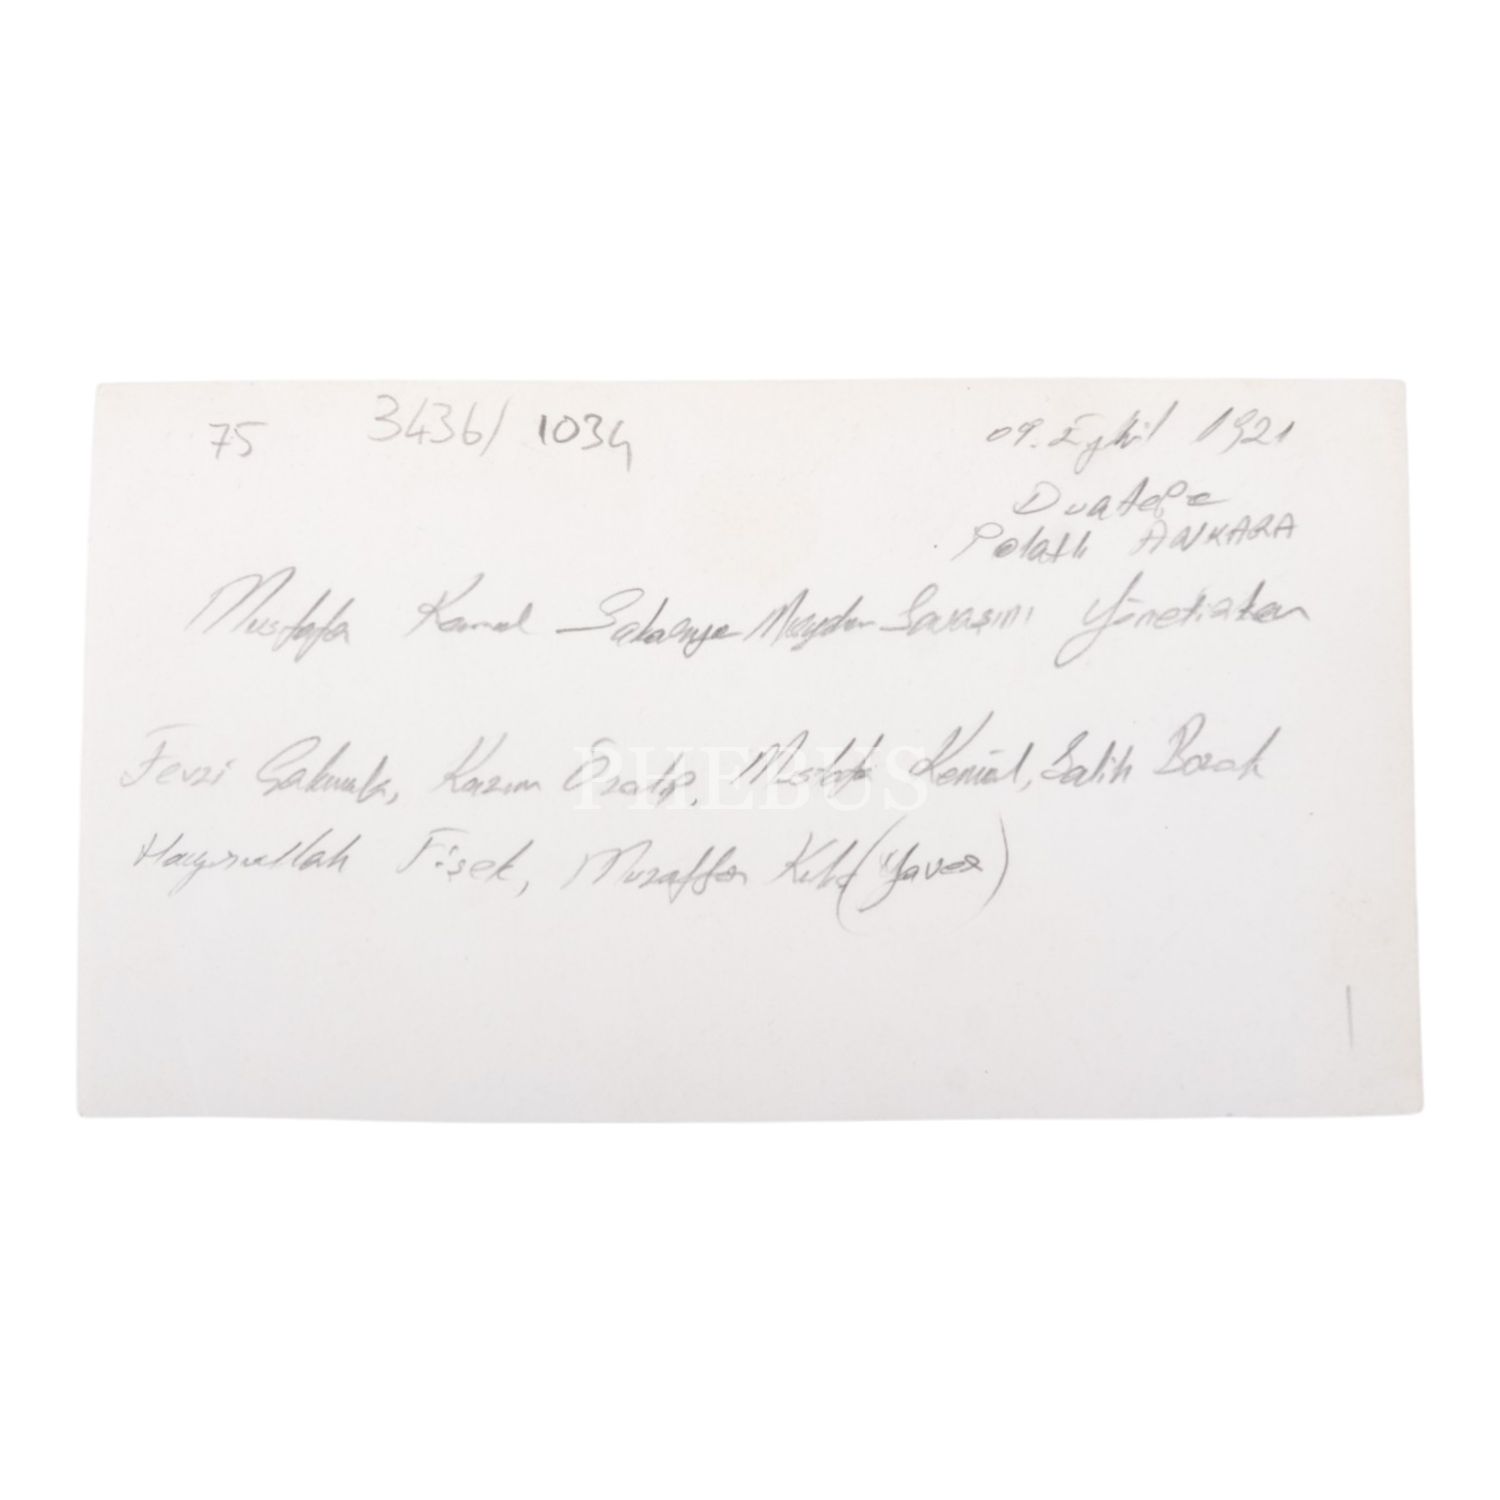 75 3436/ 1034 09. Eylül 1921
Duatepe
Polatlı ANKARA
Mustafa Kemal Sakarya Meydan Savaşını Yönetirken
Fevzi Çakmak, Kazım Özalp, Mustafa Kemal, Salih Bozok
PHEBUS
Hayrullah Fişek, Muzaffer Kılıç (Yaver)